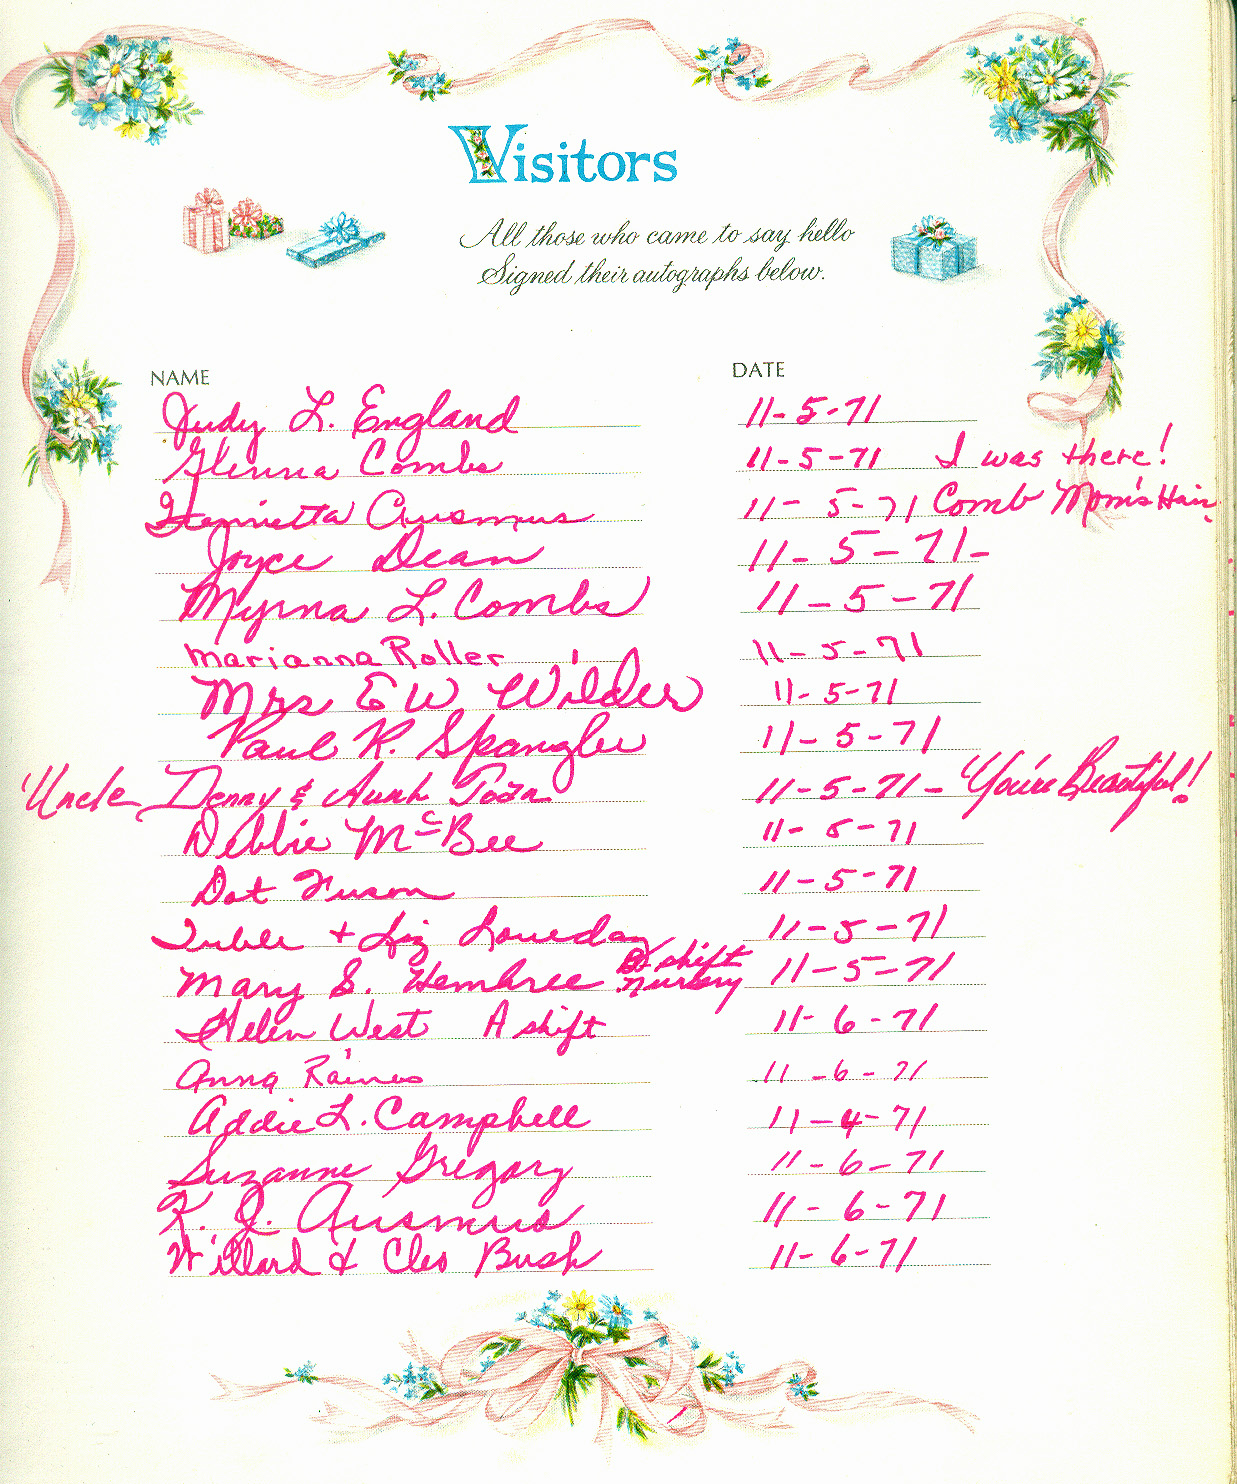 Visitors
All those who came to say hello
Signed their autographs below.
NAME DATE
Judy L. England 11-5-71
Glenna Combs 11-5-71 I was there!
Henrietta Ausmus 11-5-71 Comb Mom's Hair.
Joyce Dean 11-5-71-
Myrna L. Combs 11-5-71
Marianna Roller 11-5-71
Mrs E W Wilder 11-5-71
Paul R. Spangler 11-5-71
Uncle Denny & Aunt 11-5-71 - "You're Beautiful!
Debbie McBee 11-5-71
Dot Fuson 11-5-71
+ Liz Loveday 11-5-71
Mary S. Hembree shift nursery 11-5-71
Helen West A shift 11-6-71
Anna Raines 11-6-71
Addie L. Campbell 11-4-71
Suzanne Gregory 11-6-71
K. J. Ausmus 11-6-71
Willard & Cleo Bush 11-6-71